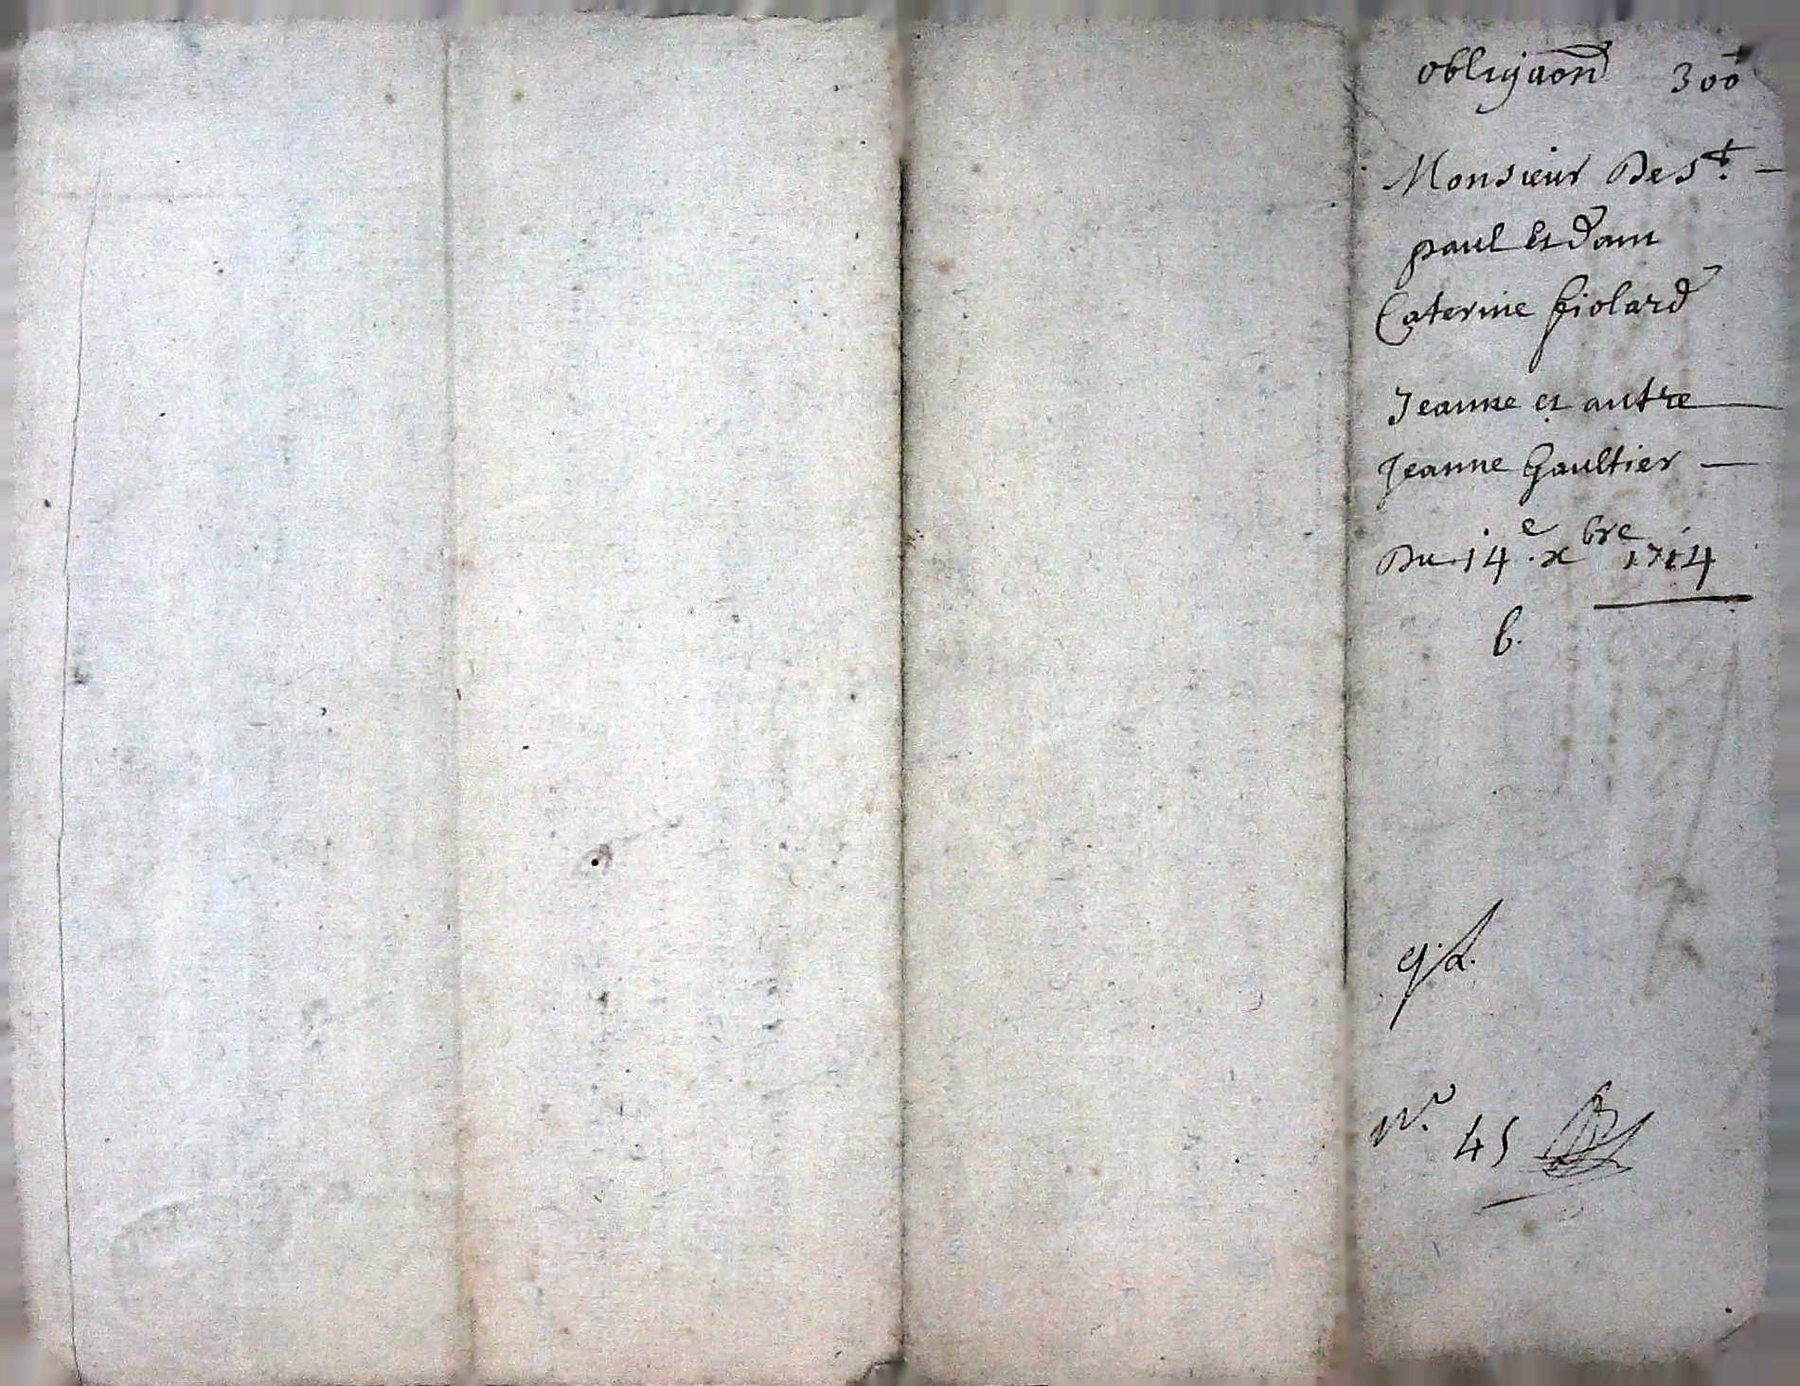 obligaon 300
Monsieur De St. —
paul et dam
Caterine fiolard
Jeanne et autre
Jeanne Gaultier —
Du 14e. xbre 1714
b.
No. 45